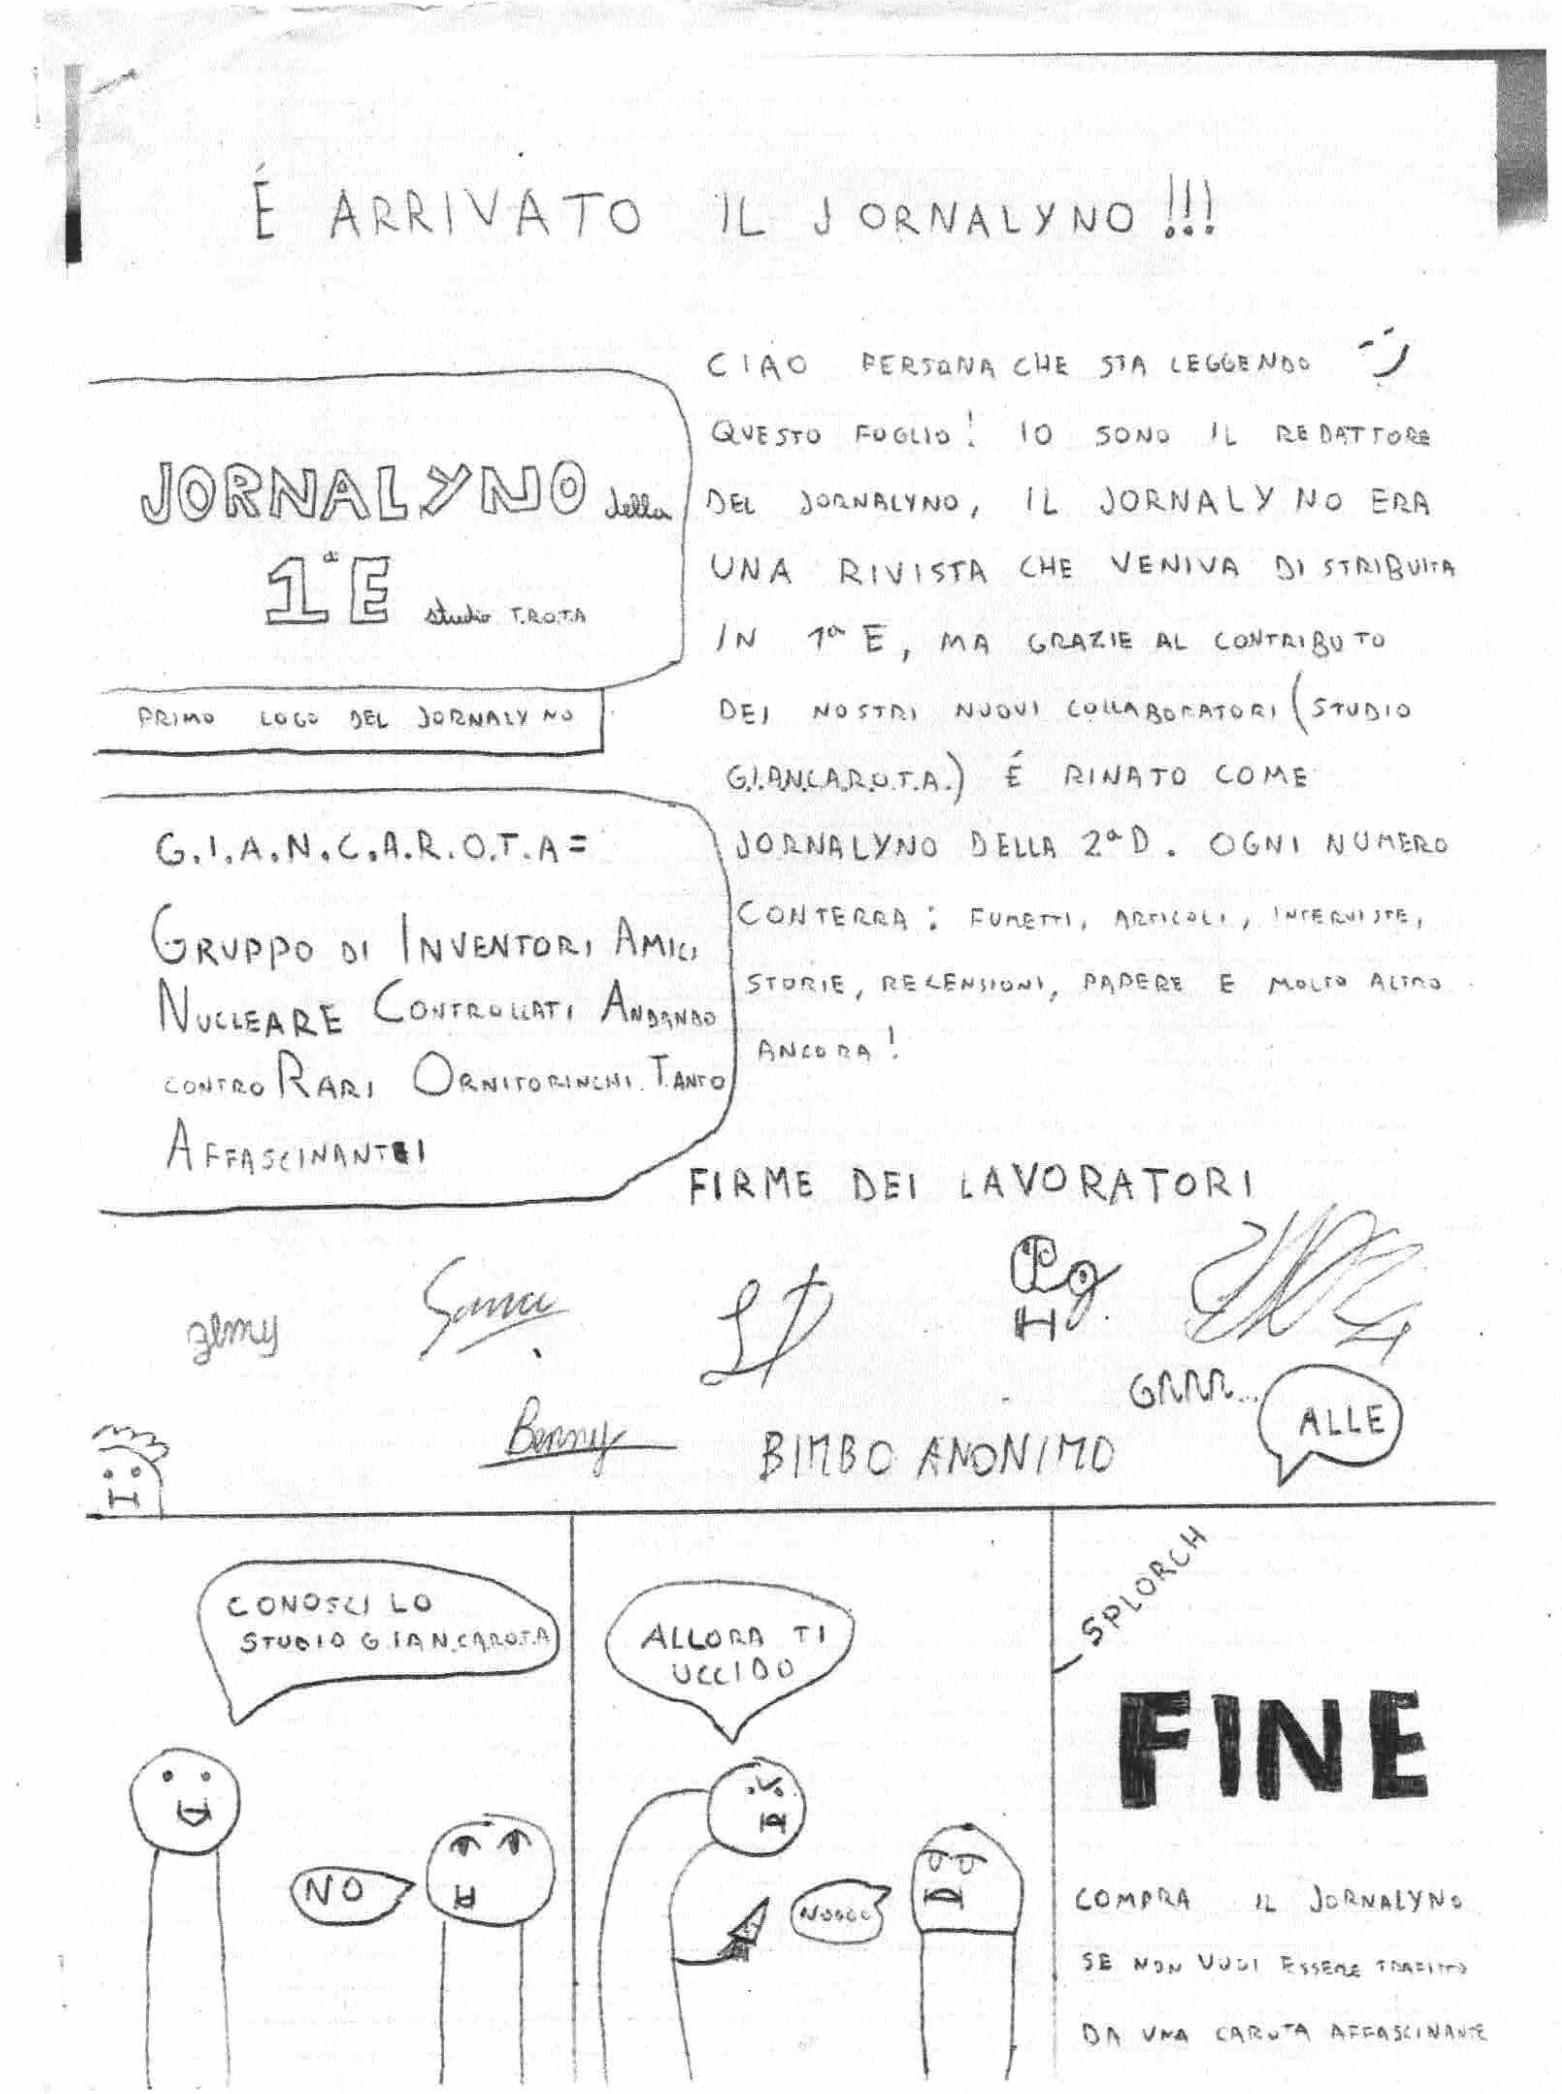 É ARRIVATO IL JORNALYNO!!!
JORNALYNO della
1ª E studio T.R.O.T.A
PRIMO LOGO DEL JORNALYNO
CIAO PERSONA CHE STA LEGGENDO
QUESTO FOGLIO! IO SONO IL REDATTORE
DEL JORNALYNO, IL JORNALYNO ERA
UNA RIVISTA CHE VENIVA DISTRIBUITA
IN 1ª E, MA GRAZIE AL CONTRIBUTO
DEI NOSTRI NUOVI COLLABORATORI (STUDIO
G.I.A.N.C.A.R.O.T.A.) É RINATO COME
JORNALYNO DELLA 2ª D. OGNI NUMERO
CONTERRA: FUMETTI, ARTICOLI, INTERVISTE,
STORIE, RECENSIONI, PAPERE E MOLTO ALTRO
ANCORA!
G.I.A.N.C.A.R.O.T.A=
GRUPPO DI INVENTORI AMICI
NUCLEARE CONTROLLATI ANDANDO
CONTRO RARI ORNITORINCHI TANTO
AFFASCINANTI
FIRME DEI LAVORATORI
zemy
Benny
BIMBO ANONIMO
GRRR...
ALLE
CONOSCI LO
STUDIO G.IAN.CAROT.A
NO
ALLORA TI
UCCIDO
NOOOO
SPLORCH
FINE
COMPRA IL JORNALYNO
SE NON VUOI ESSERE TRAFITTO
DA UNA CAROTA AFFASCINANTE